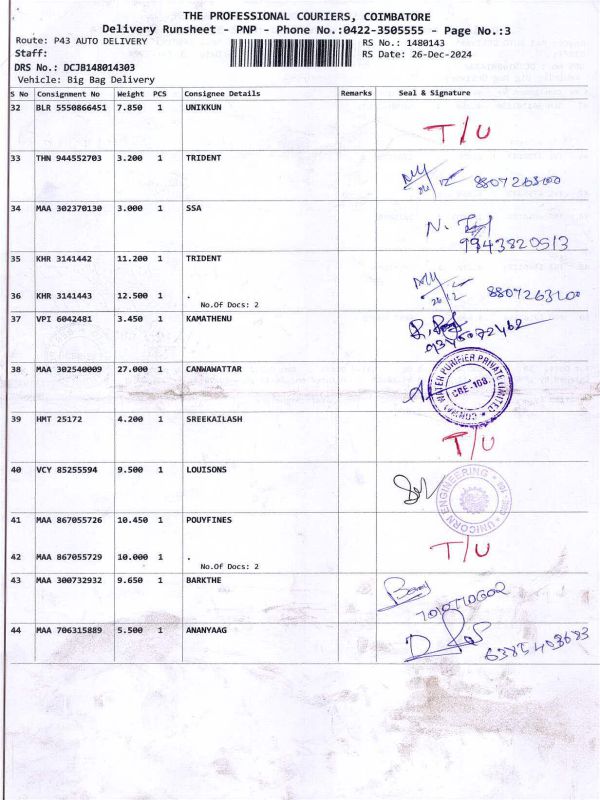 THE PROFESSIONAL COURIERS, COIMBATORE
Delivery Runsheet - PNP - Phone No.:0422-3505555 - Page No.:3
Route: P43 AUTO DELIVERY
RS No.: 1480143
Staff:
RS Date: 26-Dec-2024
DRS No.: DCJB148014303
Vehicle: Big Bag Delivery
S No Consignment No Weight PCS Consignee Details Remarks Seal & Signature
32 BLR 5550866451 7.850 1 UNIKKUN
T/U
33 THN 944552703 3.200 1 TRIDENT
26/12 8807263100
34 MAA 302370130 3.000 1 SSA
N.
9943820513
35 KHR 3141442 11.200 1 TRIDENT
36 KHR 3141443 12.500 1 .
26/12 8807263100
No.Of Docs: 2
37 VPI 6042481 3.450 1 KAMATHENU
38 MAA 302540009 27.000 1 CANWAWATTAR
WATER PURIFIER PRIVATE LIMITED
CBE-168.
39 HMT 25172 4.200 1 SREEKAILASH
T/U
40 VCY 85255594 9.500 1 LOUISONS
UNICORN ENGINEERING
41 MAA 867055726 10.450 1 POUYFINES
T/U
42 MAA 867055729 10.000 1 .
No.Of Docs: 2
43 MAA 300732932 9.650 1 BARKTHE
44 MAA 706315889 5.500 1 ANANYAAG
6385403683